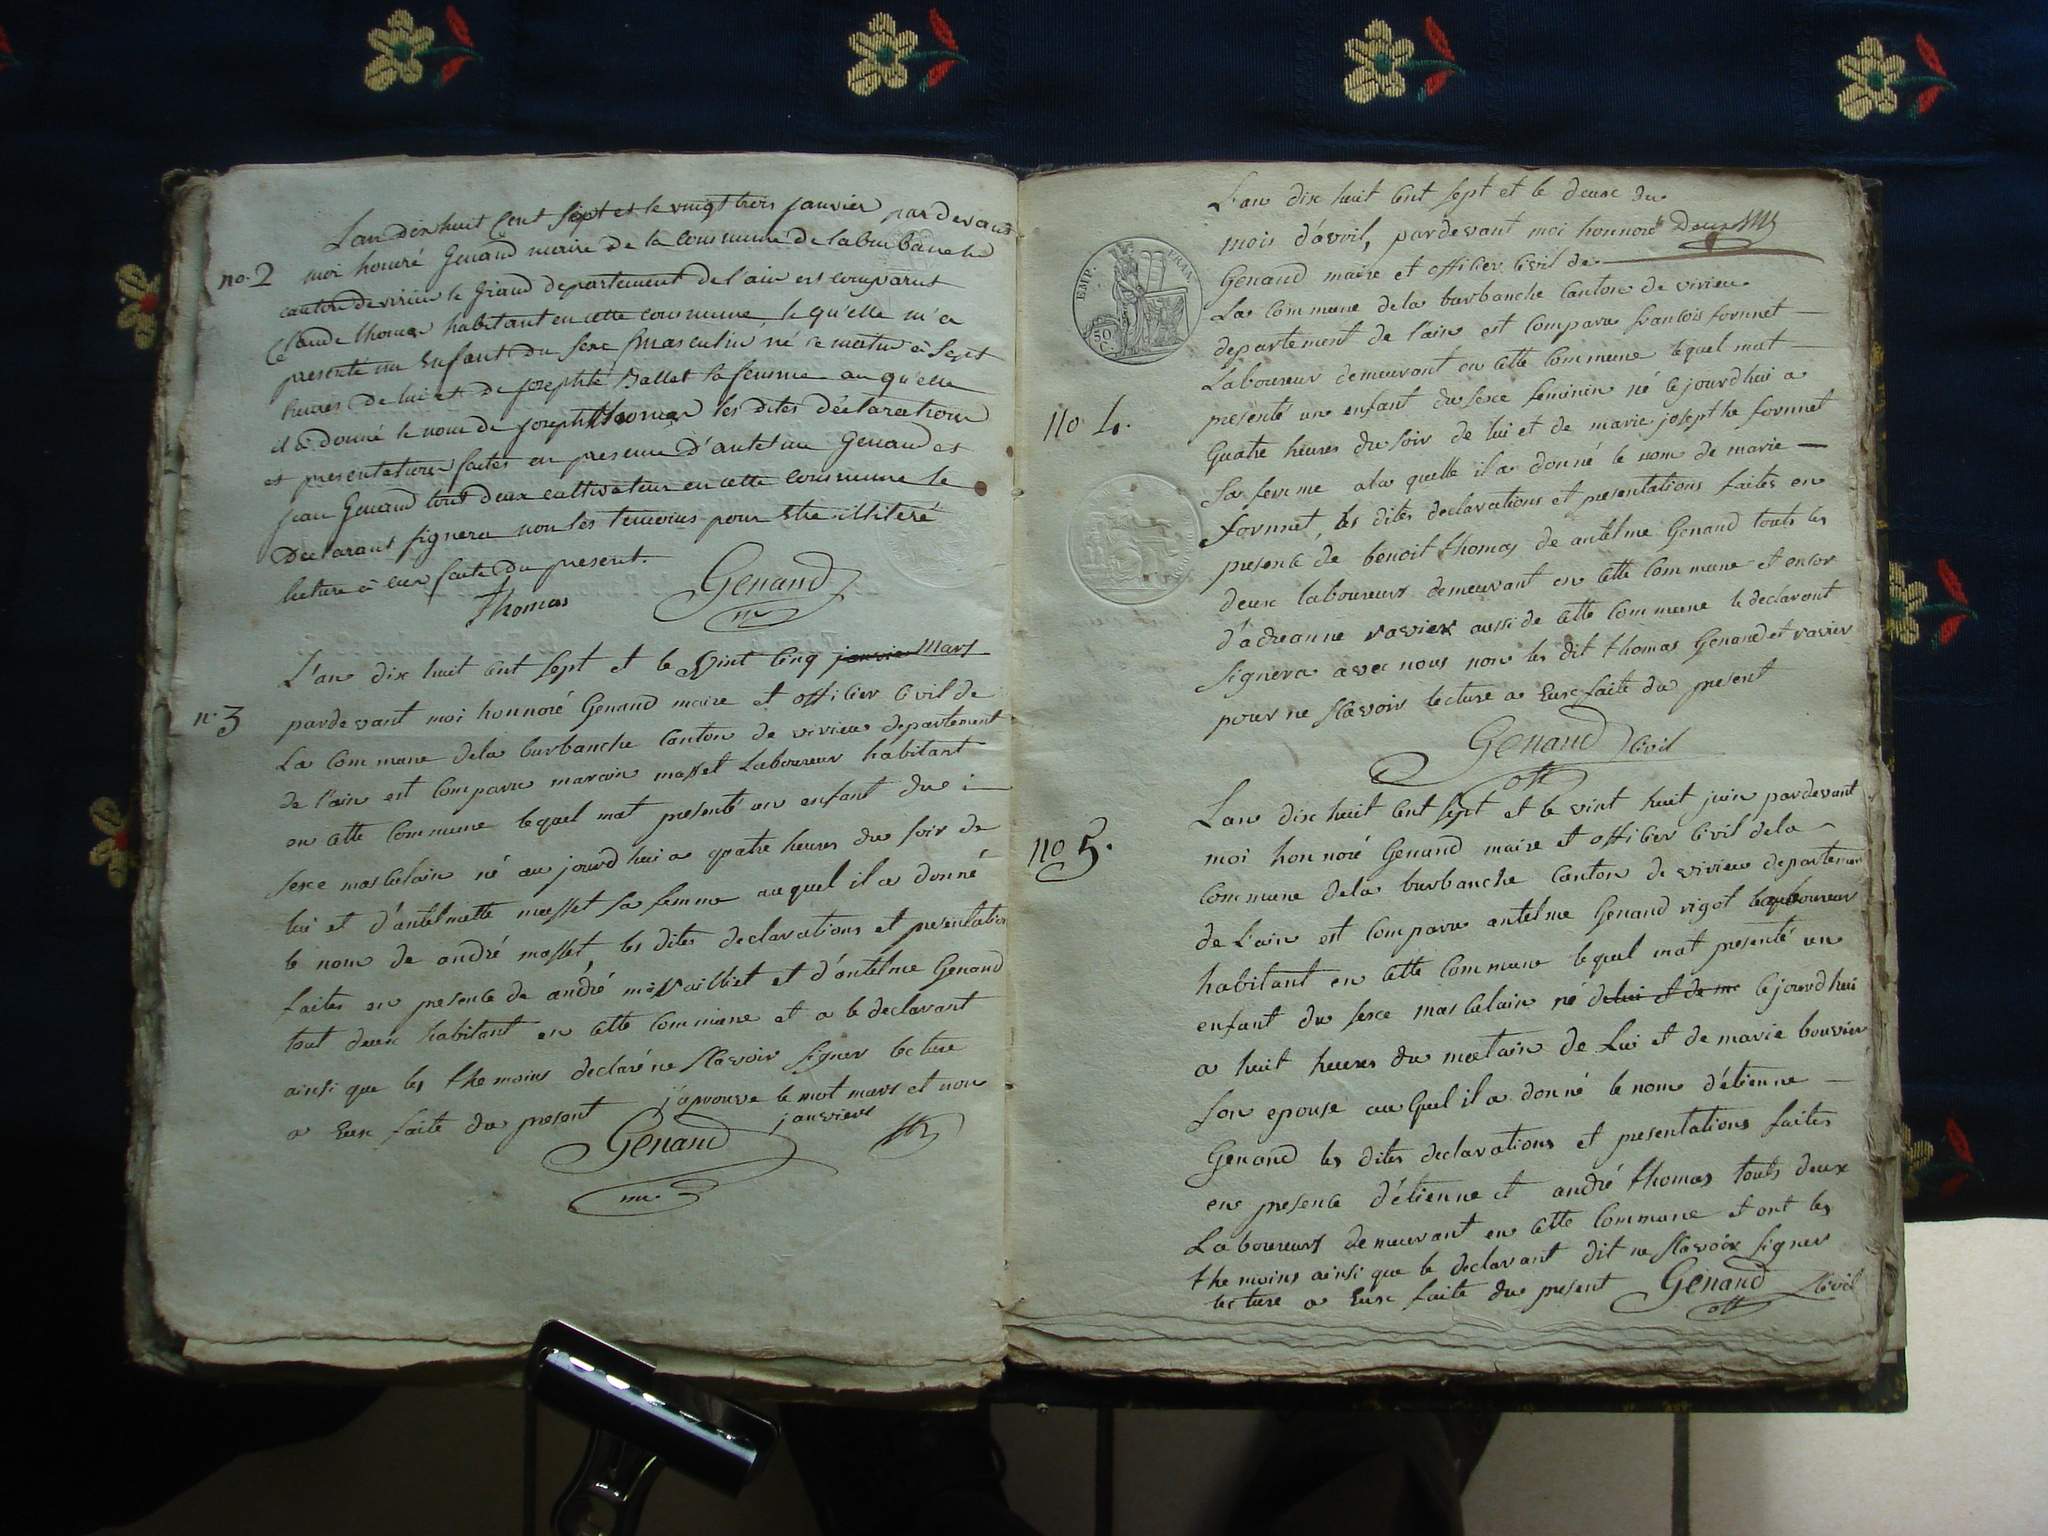 Lan Dixhuit Cent Sept et le vingt trois janvier par devant
no. 2
moi honoré Genand maire de la commune de laburbanche
canton de virieu le grand departement de l'ain est comparut
Claude thomas habitant en cette commune le qu'elle m'a
presenté un Enfant du sexe masculin né ce matin à Sept
heures de lui et de josephte Ballet sa femme au qu'elle
il a donné le nom de joseph thomas les dites déclarations
et presentations faites en presence d'antelme Genand et
jean Genand tout deux cultivateur en cette commune le
Declarant signera non les temoins pour Etre illiteré
lecture à eux faite du present.
Thomas Genand
m
L'an dix huit cent sept et le vint cinq janvier mars
n. 3
pardevant moi honnoré Genand maire et officier civil de
La commune dela burbanche canton de virieu departement
de l'ain est comparu marain masset Laboureur habitant
en cette commune lequel mat presenté un enfant du
sexe masculain né au jourd hui a quatre heures du soir de
lui et d'antelmette masset sa femme auquel il a donné
le nom de andré masset, les dites declarations et presentation
faites en presence de andré et d'antelme Genand
tout deux habitant en cette commune et a le declarant
ainsi que les themoins declaré ne scavoir signer lecture
a Eux faite du present j'aprouve le mot mars et non
janvier
Genand
m.
L'an dix huit cent sept et le deux du
mois d'avril, pardevant moi honnoré Deux
Genand maire et officier civil de
La commune dela burbanche canton de virieu
departement de l'ain est comparu francois fornnet
Laboureur demeurant en cette commune lequel mat
presenté un enfant du sexe feminin né cejourdhui a
no 4.
quatre heures du soir de lui et de marie josephte fornnet
sa femme ala quelle il a donné le nom de marie
fornnet, les dites declarations et presentations faites en
presence de benoit thomas de antelme Genand touts les
deux laboureurs demeurant en cette commune et encor
d'adreanne ravier aussi de cette commune le declarant
signera avec nous non les dit thomas Genand et ravier
pour ne scavoir lecture a Eux faite du present
Genand civil
off
L'an dix huit cent sept et le vint huit juin pardevant
no 5.
moi honnoré Genand maire et officier civil dela
commune dela burbanche canton de virieu departement
de L'ain est comparu antelme Genand rigot laboureur
habitant en cette commune lequel mat presenté un
enfant du sexe masculain né delui et de me cejourdhui
a huit heures du matain de Lui et de marie bouvier
son epouse au quel il a donné le nom d'étienne
Genand les dites declarations et presentations faites
en presence d'étienne et andré thomas touts deux
Laboureurs demeurant en cette commune et ont les
themoins ainsi que le declarant dit ne scavoir signer
lecture a Eux faite du present Genand civil
off
EMP. FRAN
50 C.